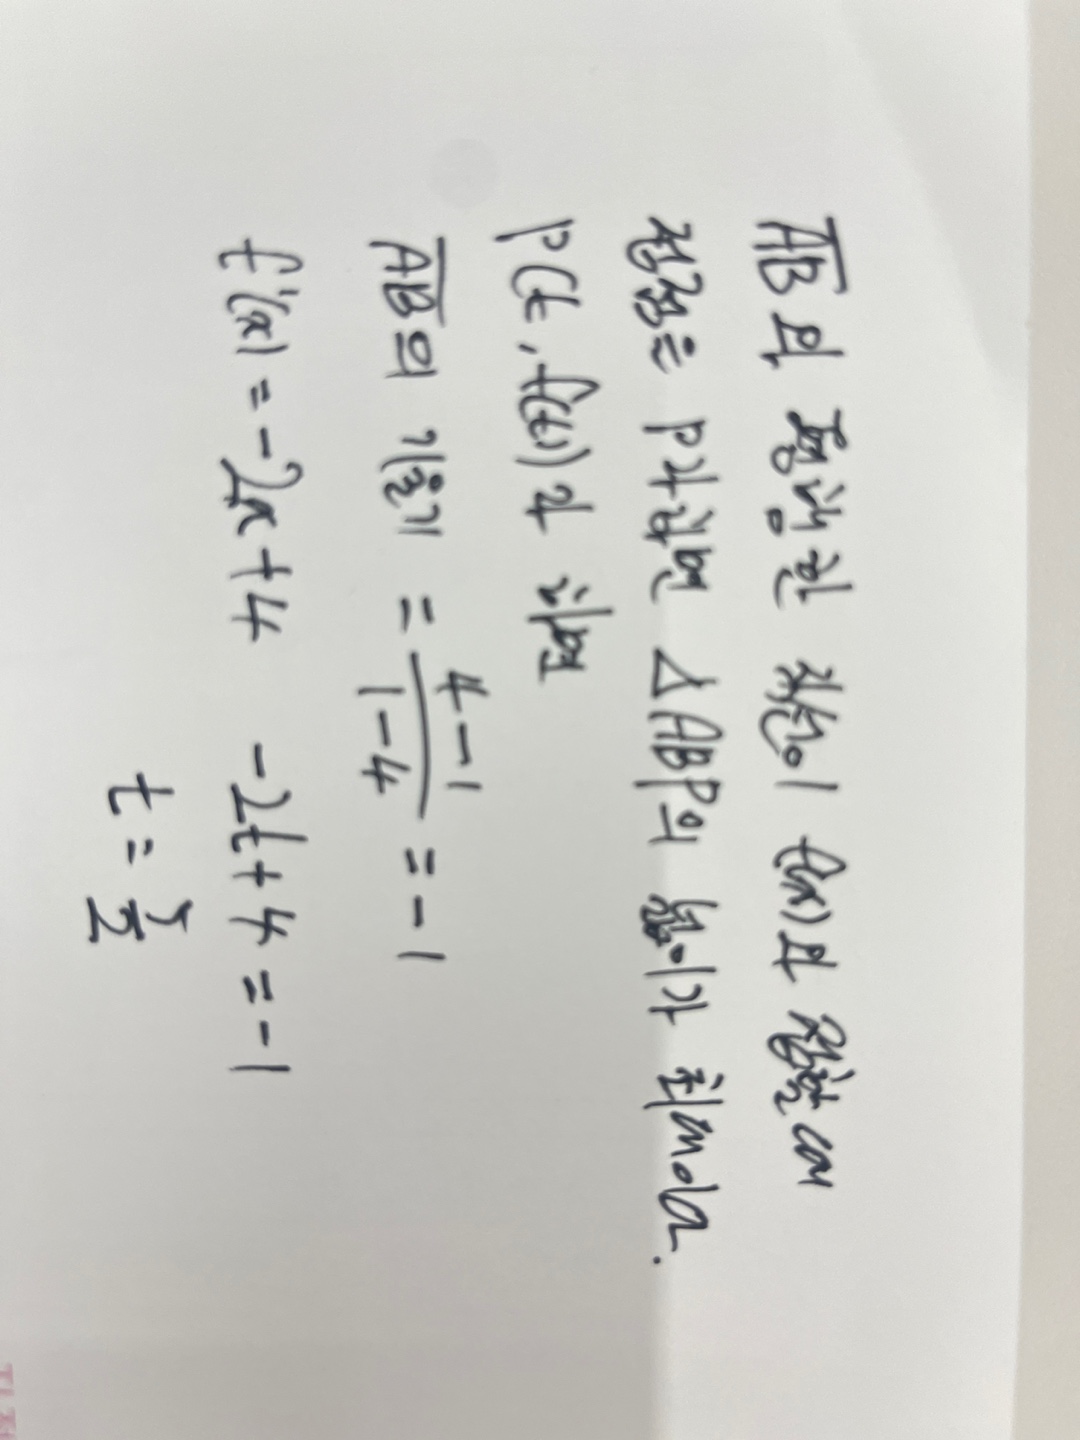 $\overline{AB}$와 평행한 직선이 f(x)와 접할 때
접점을 P라 하면 △ABP의 넓이가 최대이다.
P(t, f(t))라 하면
$\overline{AB}$의 기울기 = $\frac{4-1}{1-4}$ = -1
f'(x) = -2x+4 -2t+4 = -1
t = $\frac{5}{2}$